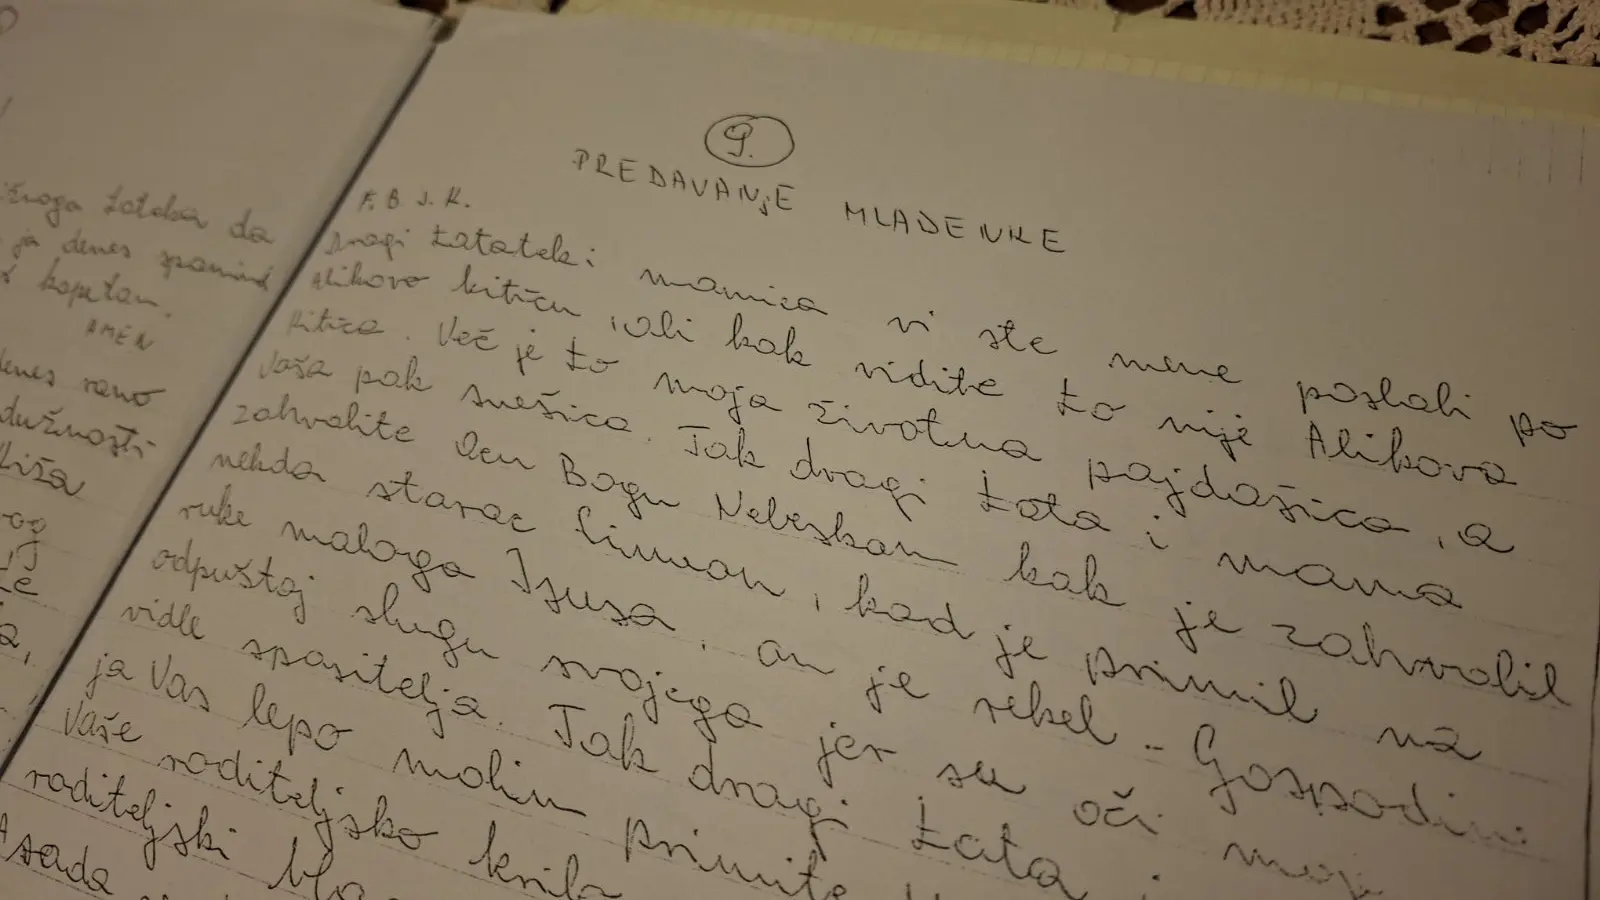 tateka da
ja denes
AMEN
denes rano
dužnosti
9.
PREDAVANJE MLADENKE
F. B. J. K.
Dragi tatatek i mamica vi ste mene poslali po
Alikovo kiticu, ali kak vidite to nije Alikova
kitica. Več je to moja životna pajdašica, a
Vaša pak snešica. Tak dragi tata i mama
zahvalite Ocu Bogu Nebeskom kak je zahvalil
nekda starac Simon, kad je primil na
ruke maloga Isusa, on je rekel - Gospodine
odpuštaj slugu svojega jer su oči moje
vidle spasitelja. Tak dragi tata i
ja Vas lepo molim primite
Vaše roditeljsko krilo
roditeljski
A sada